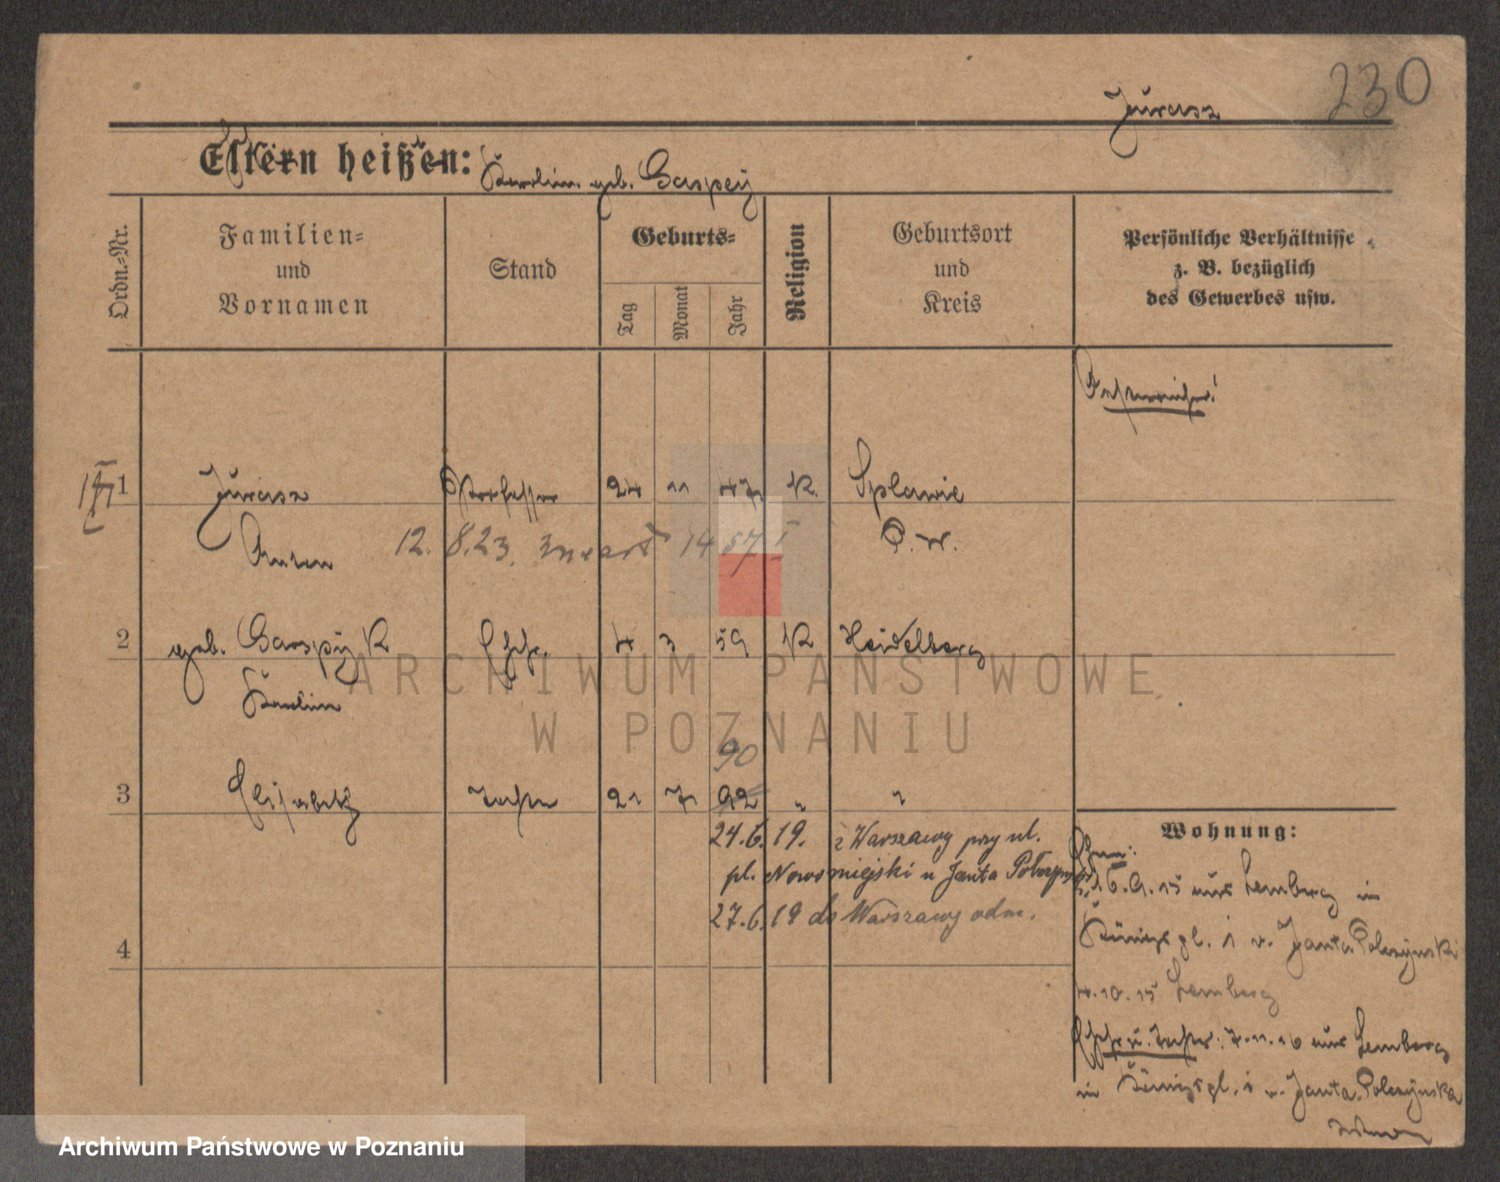 230
Jurasz
Eltern heißen:
Karolin. geb. Gaspey
Ordn.-Nr.
Familien-
und
Vornamen
Stand
Geburts-
Tag
Monat
Jahr
Religion
Geburtsort
und
Kreis
Persönliche Verhältnisse
z. B. bezüglich
des Gewerbes usw.
Oesterreicher!
1 Jurasz Professor 24 11 47 K. Splawie
Anton 12. 8.23. zmarł 1457 I P. W.
2 geb. Gaspey K Ehefr. 4 3 59 K Heidelberg
Karolin
90
3 Elisabeth Tochter 21 7 92 " "
24.6.19. z Warszawy przy ul.
pl. Nowomiejski u Janta Połczyński
27.6.19 do Warszawy odm.
4
Wohnung:
16.9.15 aus Lemberg in
Königspl. 1 v. Janta Polczynski
4.10.15 Lemberg
Ehefr u. Tochter: 7.11.16 aus Lemberg
in Königspl. 1 v. Janta Polczynska
ARCHIWUM PAŃSTWOWE
W POZNANIU
Archiwum Państwowe w Poznaniu